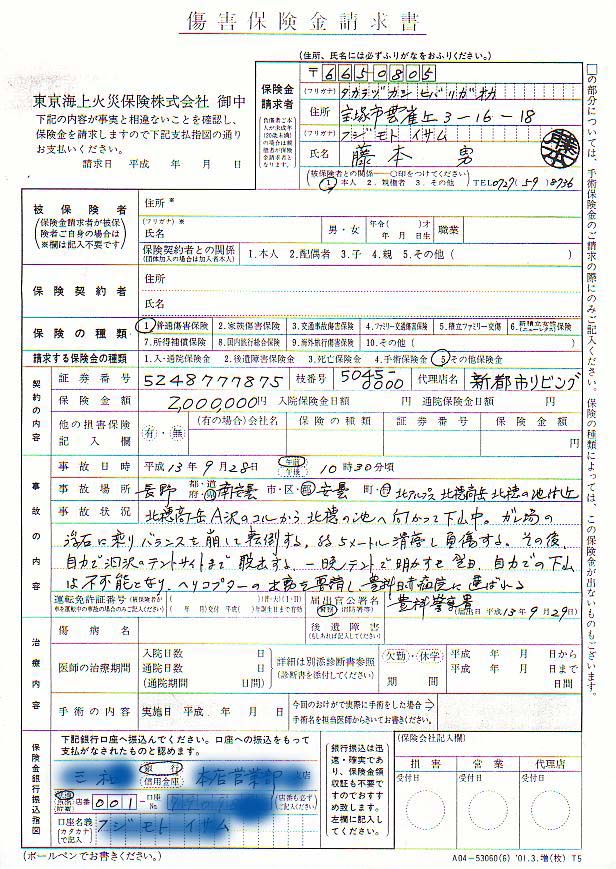 傷害保険金請求書
(住所、氏名には必ずふりがなをおふりください。)
東京海上火災保険株式会社 御中
下記の内容が事実と相違ないことを確認し、
保険金を請求しますので下記支払指図の通り
お支払いください。
請求日 平成 年 月 日
保険金
請求者
〒6650805
(フリガナ) タカラヅカシ ヒバリガオカ
住所 宝塚市雲雀丘3-16-18
(フリガナ) フジモト イサム
氏名 藤本 勇
(被保険者との関係……○印をつけてください)
1 本人 2.親権者 3.その他( ) TEL 0727(59)8736
□の部分については、手術保険金のご請求の際にのみご記入ください。
(保険の種類によっては、この保険金が出ないものもございます。)
被保険者
(保険金請求者が被保
険者ご自身の場合は
※欄は記入不要です)
住所※
(フリガナ)※
氏名
男・女
年令( )才
年 月 日生
職業
保険契約者との関係
(団体加入の場合は加入者本人)
1.本人 2.配偶者 3.子 4.親 5.その他( )
保険契約者
住所
氏名
保険の種類
1 普通傷害保険 2.家族傷害保険 3.交通事故傷害保険 4.ファミリー交通傷害保険 5.積立ファミリー交傷 6.新積立女性保険(ニューレタス)
7.所得補償保険 8.国内旅行総合保険 9.海外旅行傷害保険 10.その他( )
請求する保険金の種類 1.入・通院保険金 2.後遺障害保険金 3.死亡保険金 4.手術保険金 5 その他保険金
契約の内容
証券番号 5248777875 枝番号 5045-0000 代理店名 新都市リビング
保険金額 2,000,000円 入院保険金日額 円 通院保険金日額 円
他の損害保険
記入欄
有・無
(有の場合)会社名 保険の種類 証券番号 保険金額
円
事故の内容
事故日時 平成13年9月28日 午前 午後 10時30分頃
事故場所 長野 都・道 府・県 南安曇 市・区・郡 安曇 町・村 北アルプス 北穂高岳 北穂の池付近
事故状況 北穂高岳A沢のコルから北穂の池へ向かって下山中。ガレ場の
浮石に乗りバランスを崩して転倒する。約5メートル滑落し負傷する。その後、
自力で涸沢のテントサイトまで脱出する。一晩テントで明かすも翌日、自力での下山
は不可能となり、ヘリコプターの出動を要請し豊科日赤病院に運ばれる
運転免許証番号
( 年 月交付 平成 )年誕生日まで有効
届出官公署名
豊科警察署
(届出日 平成13年9月29日)
治療内容
傷病名
後遺障害
(もしあれば記入してください)
医師の治療期間
入院日数 日
通院日数 日
(通院期間 日間)
詳細は別添診断書参照
(診断書を添付してください)
欠勤・休学
期間
平成 年 月 日から
平成 年 月 日まで
日間
手術の内容 実施日 平成 年 月 日
今回のおけがで実際に手術をした場合⇒
手術名を担当医師からきいてお書きください。
保険金銀行振込指図
下記銀行口座へ振込んでください。口座への振込をもって
支払がなされたものと認めます。
銀行
信用金庫
本店営業部 支店
店番 001 口座No.
(店番も必ずご記入ください)
口座名義
(カタカナで記入)
フジモト イサム
銀行振込は迅
速・確実であ
り、保険金領
収証も不要で
すのでおすす
め致します。
左欄に記入し
てください。
(保険会社記入欄)
損害 営業 代理店
受付日 受付日 受付日
(ボールペンでお書きください。)
A04-53060(6) '01.3.増(枚) T5